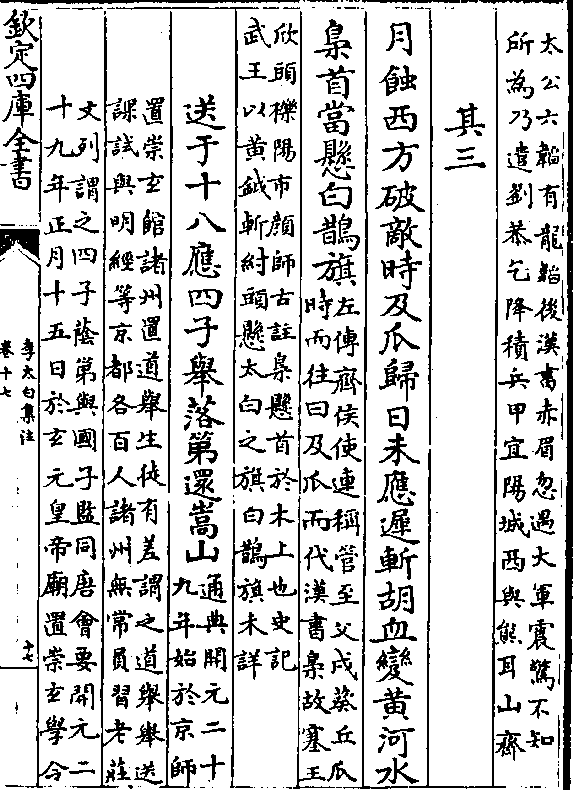 太公六韜有龍韜後漢書赤眉忽遇大軍震驚不知
所為乃遣劉恭乞降積兵甲宜陽城西與熊耳山齊
其三
月蝕西方破敵時及瓜歸日未應遲斬胡血變黃河水
梟首當懸白鵲旗左傳齊侯使連稱管至父戍葵丘瓜
時而往曰及瓜而代漢書梟故塞王
欣頭櫟陽市顔師古註梟懸首於木上也史記
武王以黃鉞斬紂頭懸太白之旗白鵲旗未詳
送于十八應四子舉落第還嵩山通典開元二十
九年始於京師
置崇玄館諸州置道舉生徒有差謂之道舉舉送
課試與明經等京都各百人諸州無常員習老莊
文列謂之四子蔭第與國子監同唐會要開元二
十九年正月十五日於玄元皇帝廟置崇玄學令
欽定四庫全書
李太白集注
卷十七
十七